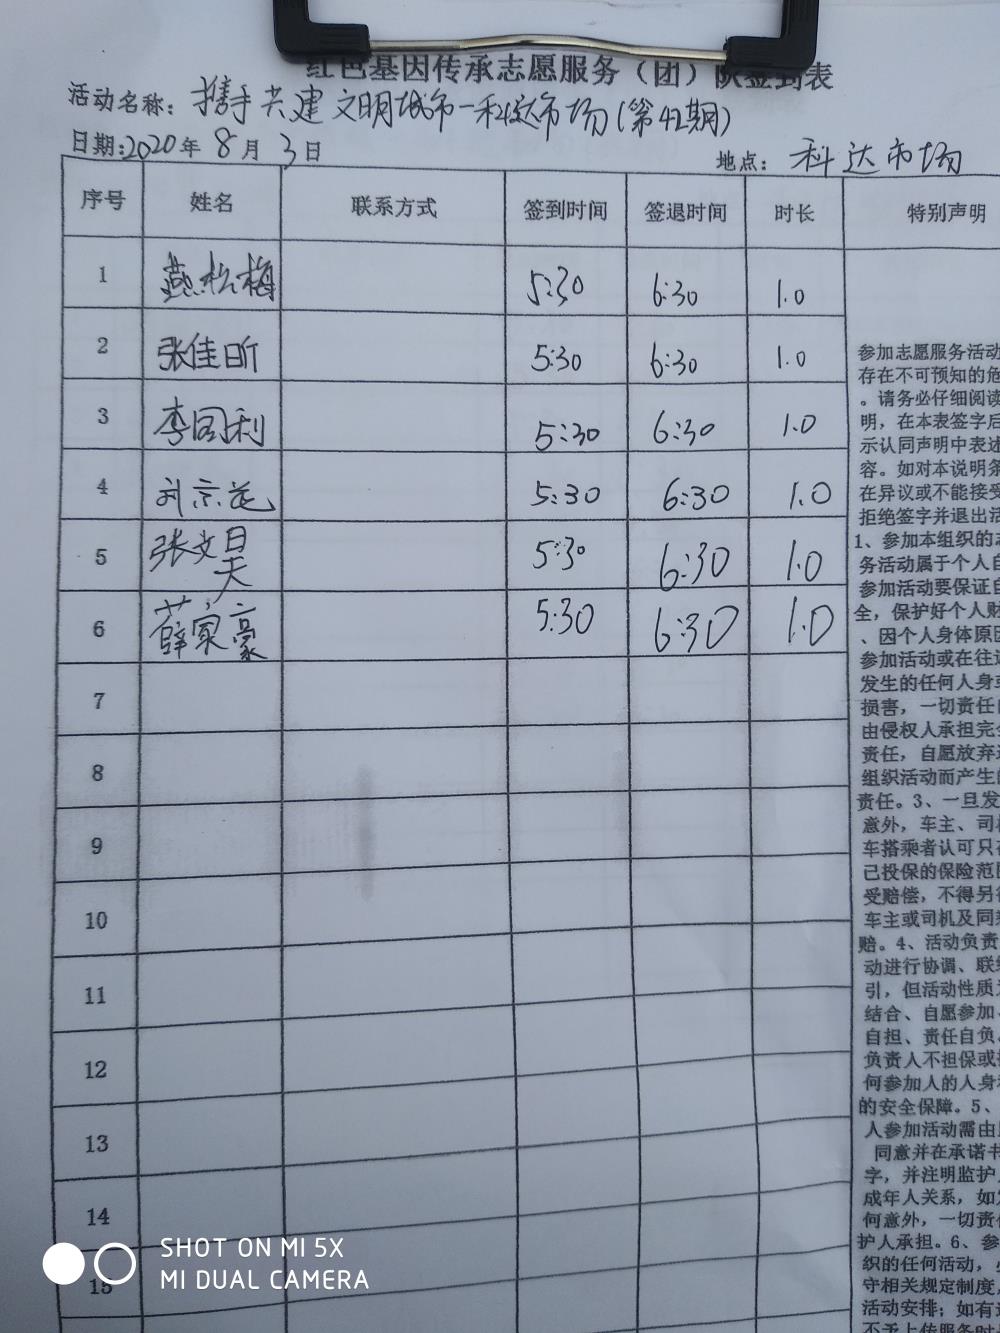 红色基因传承志愿服务（团）队签到表
活动名称：携手共建文明城市—科达市场(第42期)
日期:2020年8月3日
地点：科达市场
序号 姓名 联系方式 签到时间 签退时间 时长 特别声明
1 燕松梅 5:30 6:30 1.0
2 张佳昕 5:30 6:30 1.0
3 李同利 5:30 6:30 1.0
4 刘京花 5:30 6:30 1.0
5 张文昊 5:30 6:30 1.0
6 薛家豪 5:30 6:30 1.0
7
8
9
10
11
12
13
14
15
参加志愿服务活动
存在不可预知的危
。请务必仔细阅读
明，在本表签字后
示认同声明中表述
容。如对本说明条
在异议或不能接受
拒绝签字并退出活
1、参加本组织的志
务活动属于个人自
参加活动要保证自
全，保护好个人财
、因个人身体原因
参加活动或在往返
发生的任何人身或
损害，一切责任由
由侵权人承担完全
责任，自愿放弃
组织活动而产生的
责任。3、一旦发
意外，车主、司机
车搭乘者认可只在
己投保的保险范围
受赔偿，不得另行
车主或司机及同乘
赔。4、活动负责
动进行协调、联络
引，但活动性质为
结合、自愿参加、
自担、责任自负、
负责人不担保或
何参加人的人身和
的安全保障。5、
人参加活动需由
同意并在承诺书
字，并注明监护人
成年人关系，如发
何意外，一切责任
护人承担。6、参
织的任何活动，必
守相关规定制度，
活动安排；如有违
不予上传服务时
SHOT ON MI 5X
MI DUAL CAMERA